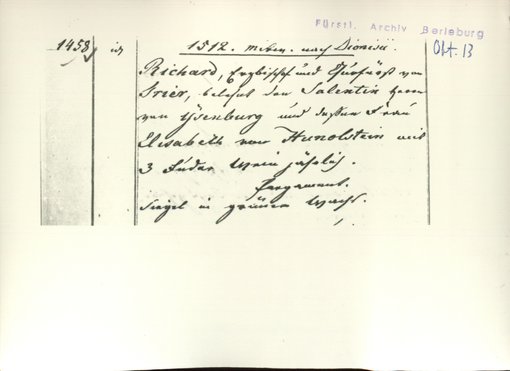 Fürstl. Archiv Berleburg
1458 ich 1512. meken. nach Dionisii. Okt. 13
Richard, Erzbischof und Churfürst von
Trier, belehnt den Salentin Herrn
von Ysenburg und dessen Frau
Elisabeth von Hunolstein mit
3 Fuder Wein jährlich.
Pergament.
Siegel in grünem Wachs.